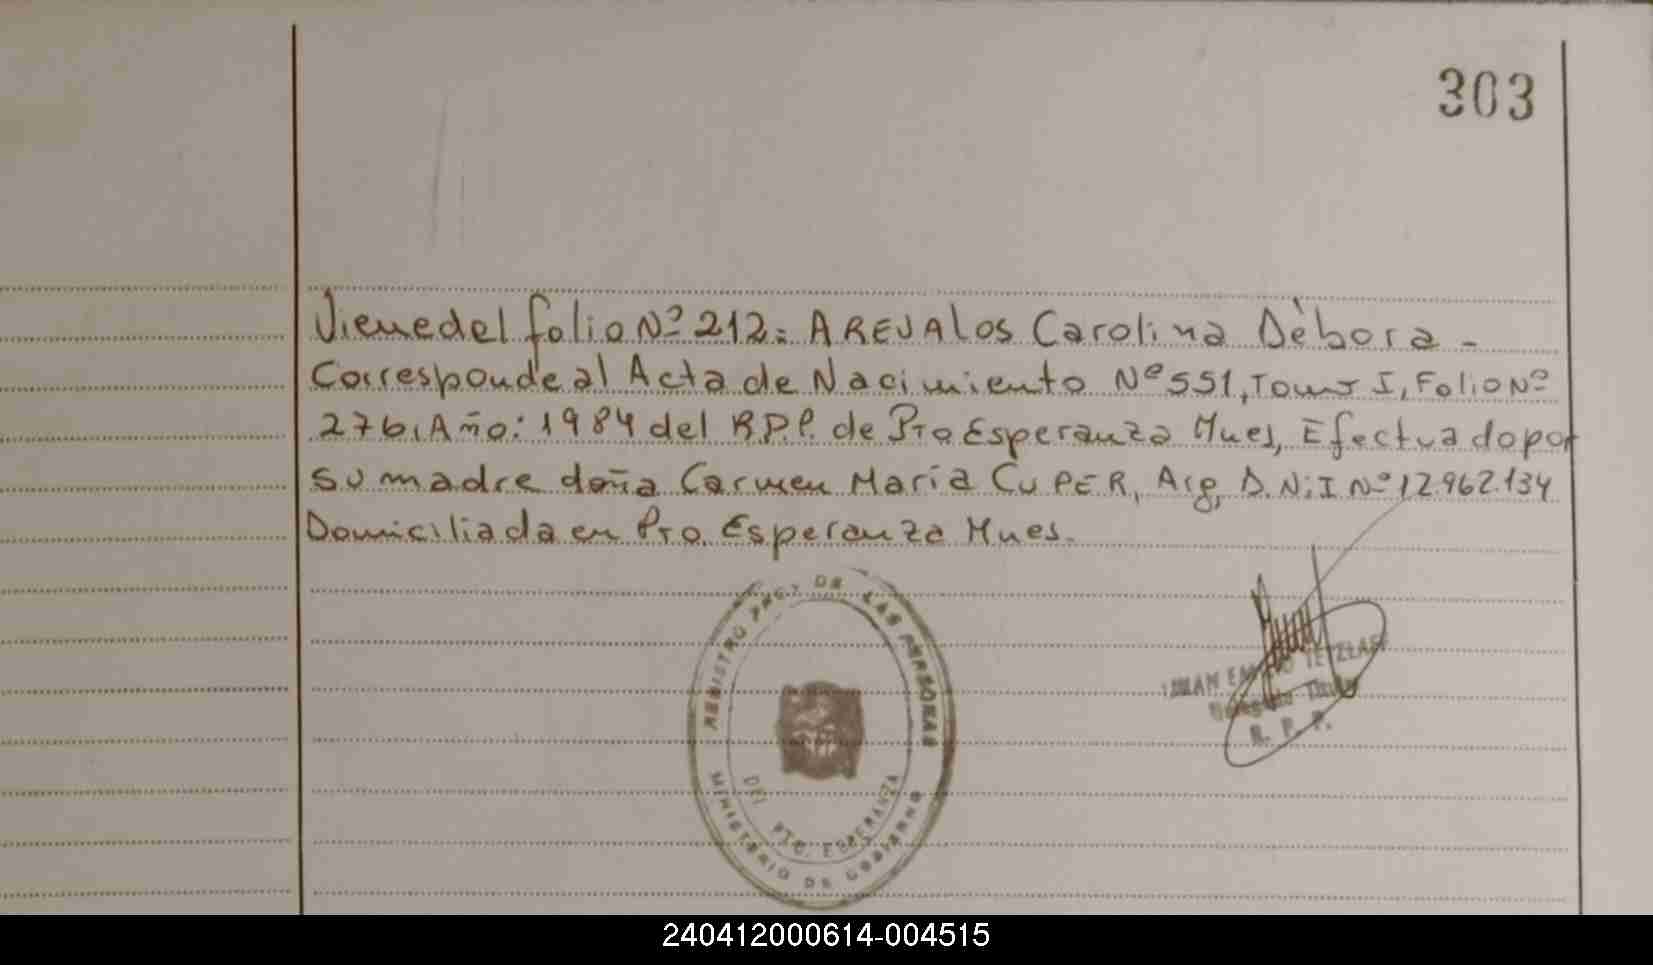 303
Viene del folio Nº 212: AREVALOS Carolina Dèbora -
Corresponde al Acta de Nacimiento Nº 551, Tomo I, Folio Nº
276, Año: 1984 del R.P.P. de Pto Esperanza Mnes, Efectuado por
su madre doña Carmen María CUPER, Arg, D.N.I Nº 12.962.134
Domiciliada en Pto. Esperanza Mnes.
REGISTRO PROV DE LAS PERSONAS
MINISTERIO DE GOBIERNO
DEL PTO. ESPERANZA
TETZLAFF
Delegado Titular
R. P. P.
240412000614-004515